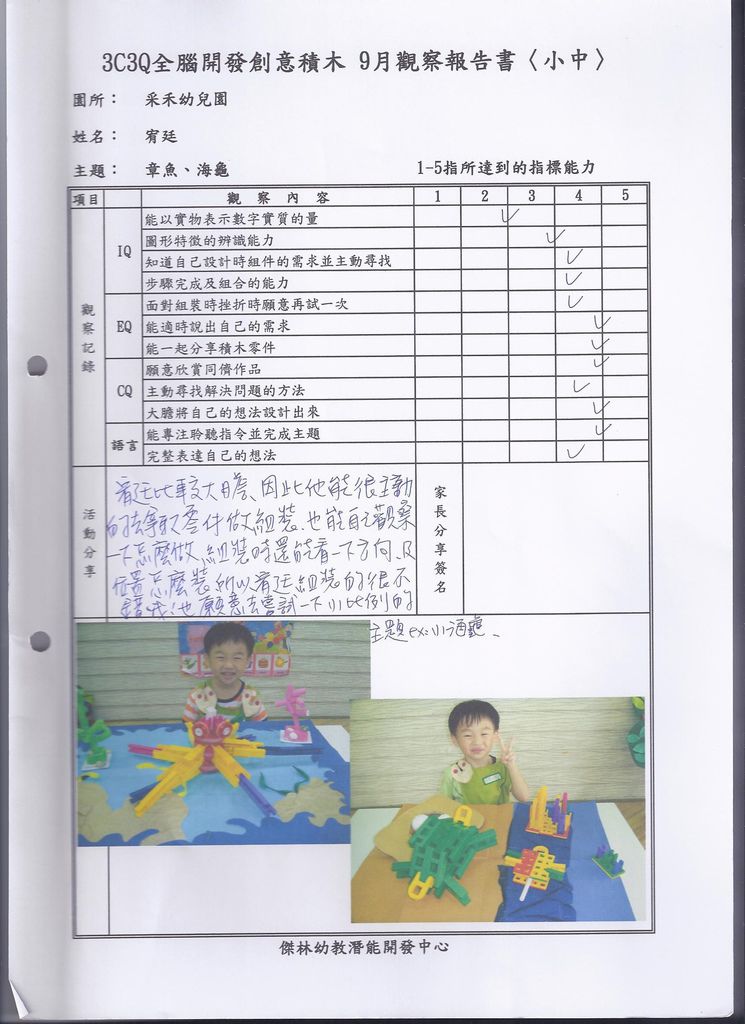 3C3Q全腦開發創意積木 9月觀察報告書〈小中〉
園所： 采禾幼兒園
姓名： 宥廷
主題： 章魚、海龜 1-5指所達到的指標能力
項目 觀 察 內 容 1 2 3 4 5
觀察記錄
IQ
能以實物表示數字實質的量
圖形特徵的辨識能力
知道自己設計時組件的需求並主動尋找
步驟完成及組合的能力
EQ
面對組裝時挫折時願意再試一次
能適時說出自己的需求
能一起分享積木零件
CQ
願意欣賞同儕作品
主動尋找解決問題的方法
大膽將自己的想法設計出來
語言
能專注聆聽指令並完成主題
完整表達自己的想法
活動分享
宥廷比較大膽、因此他能很主動
的去拿取零件做組裝、也能自己觀察
一下怎麼做、組裝時還能看一下方向、及
位置怎麼裝所以宥廷組裝的很不
錯哦!也願意去嘗試一下小比例的
主題ex:小海龜、
家長分享簽名
傑林幼教潛能開發中心